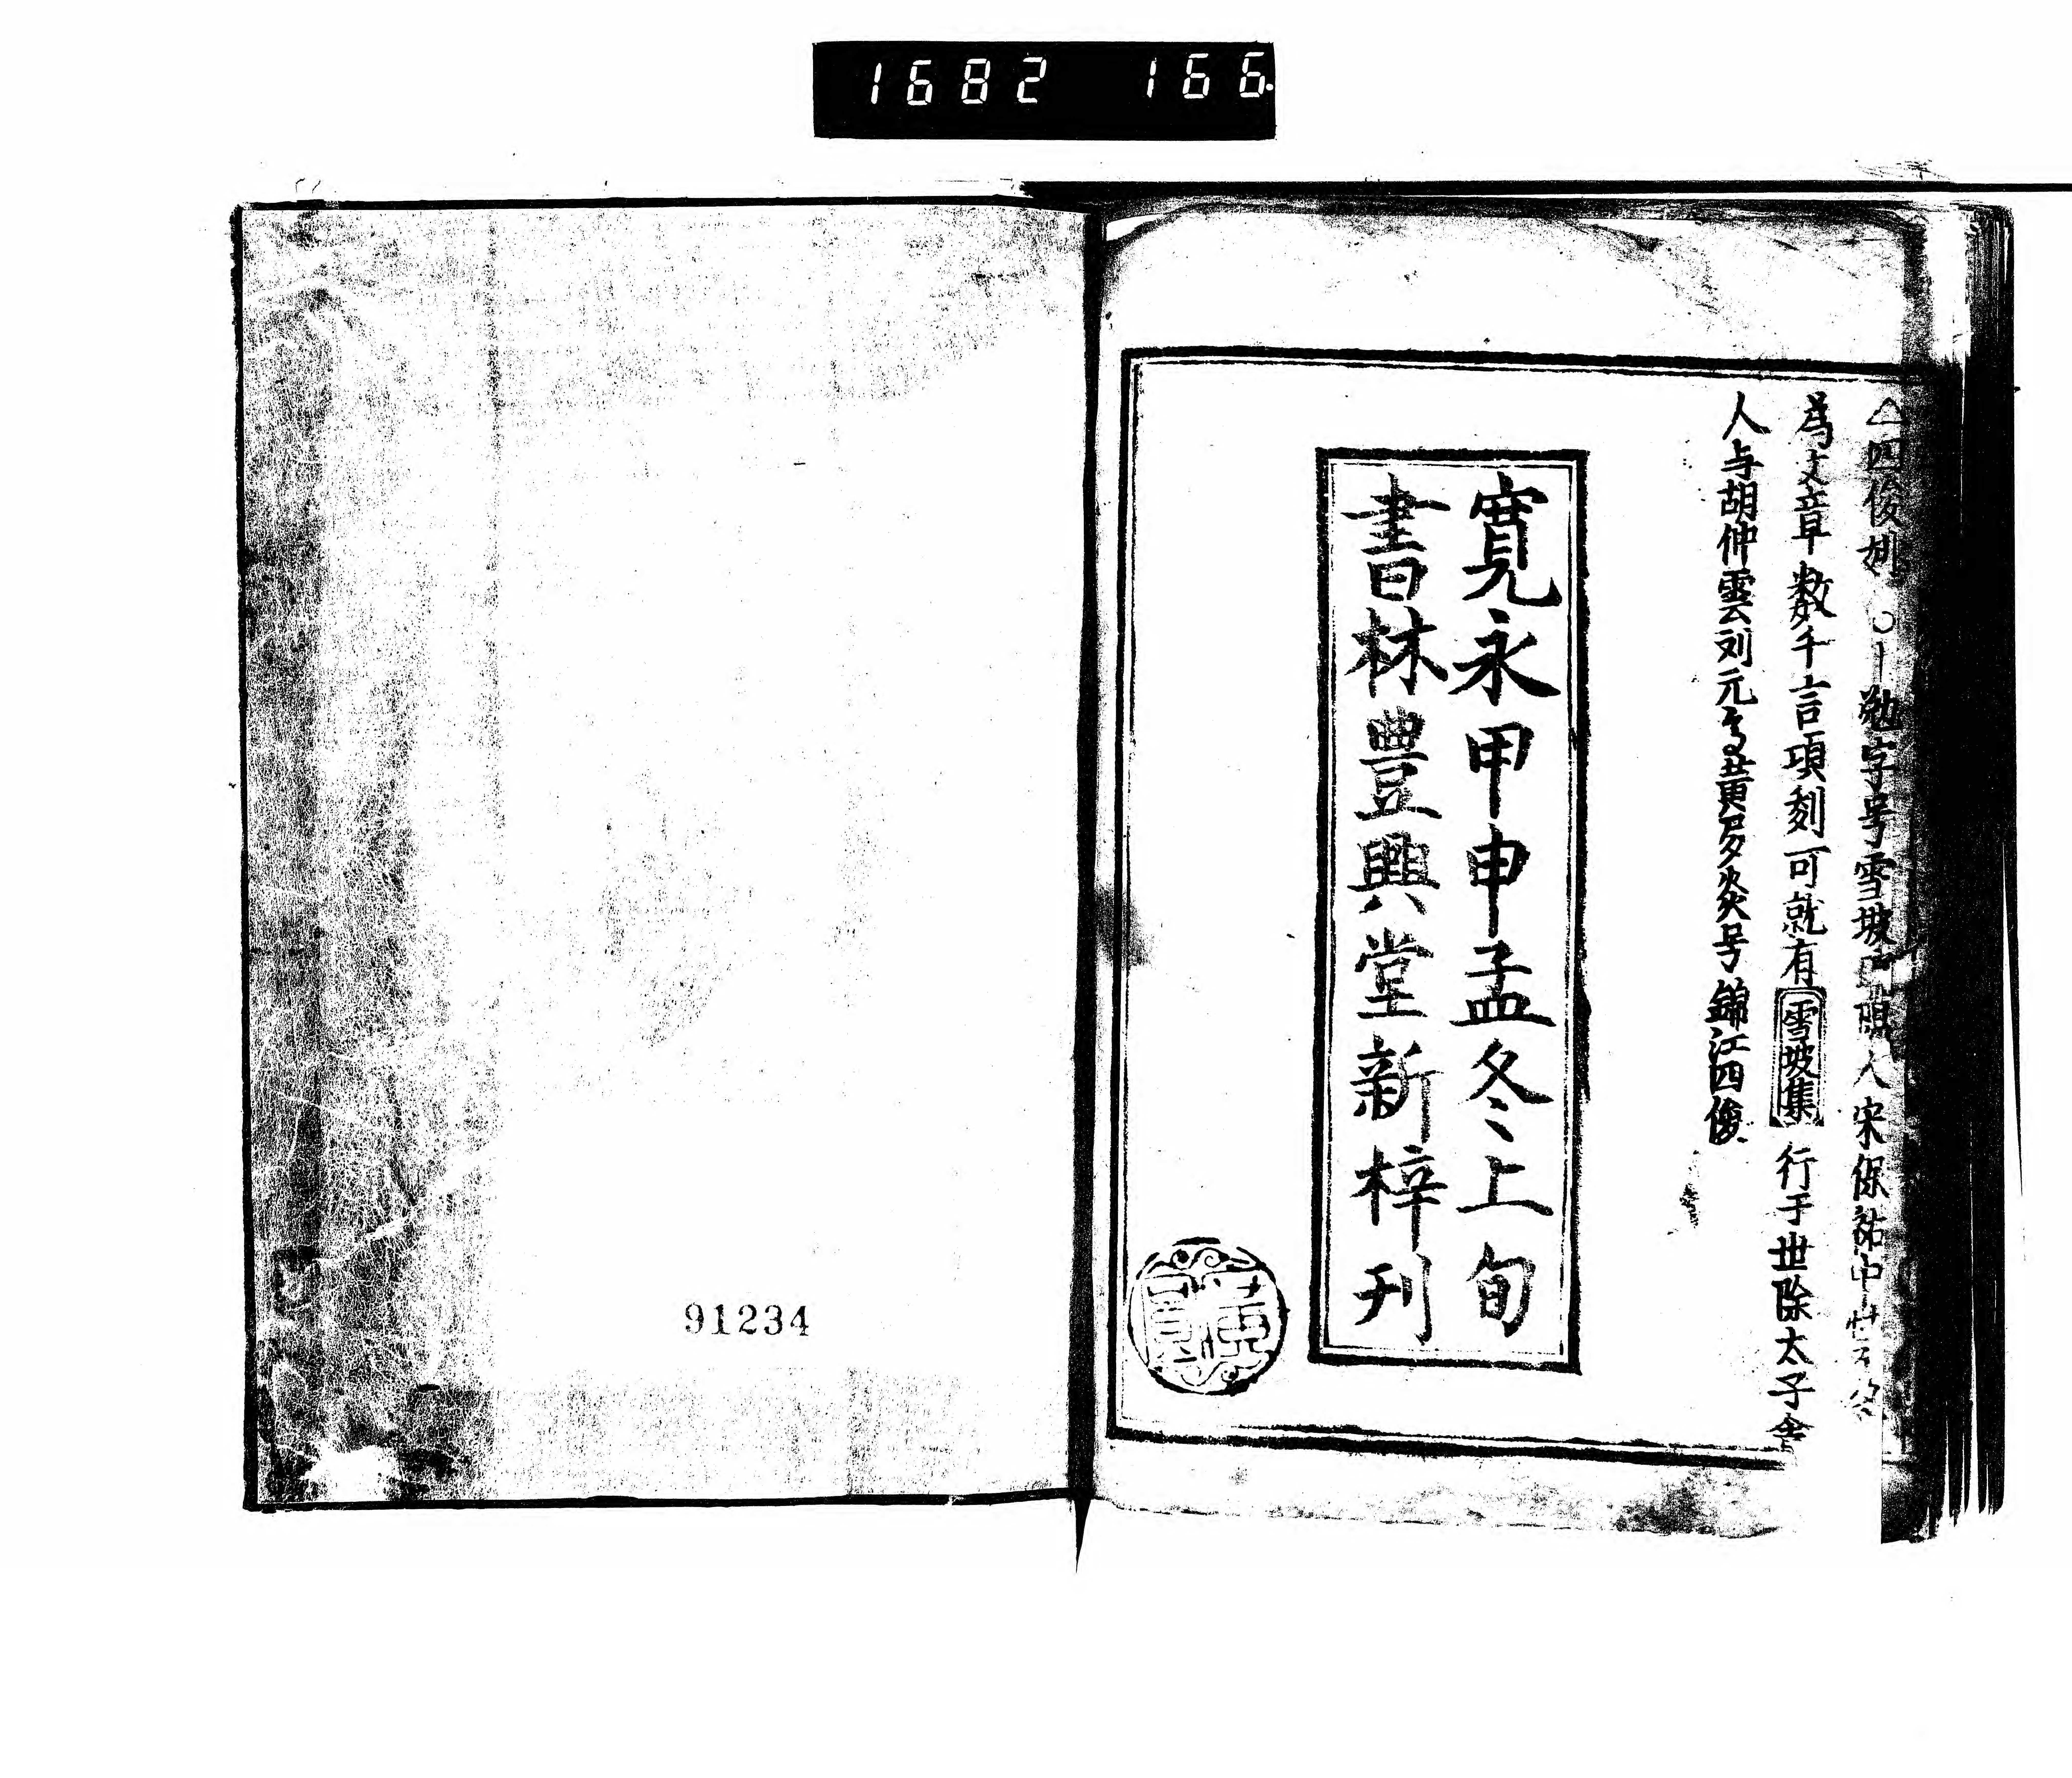 1682 166
四俊姚勉字号雪坡人宋保祐中
為文章数千言項刻可就有雪坡集行于世除太子舎
人与胡仲雲刘元黄炎号錦江四俊
寛永甲申孟冬上旬
書林豊興堂新梓刊
91234